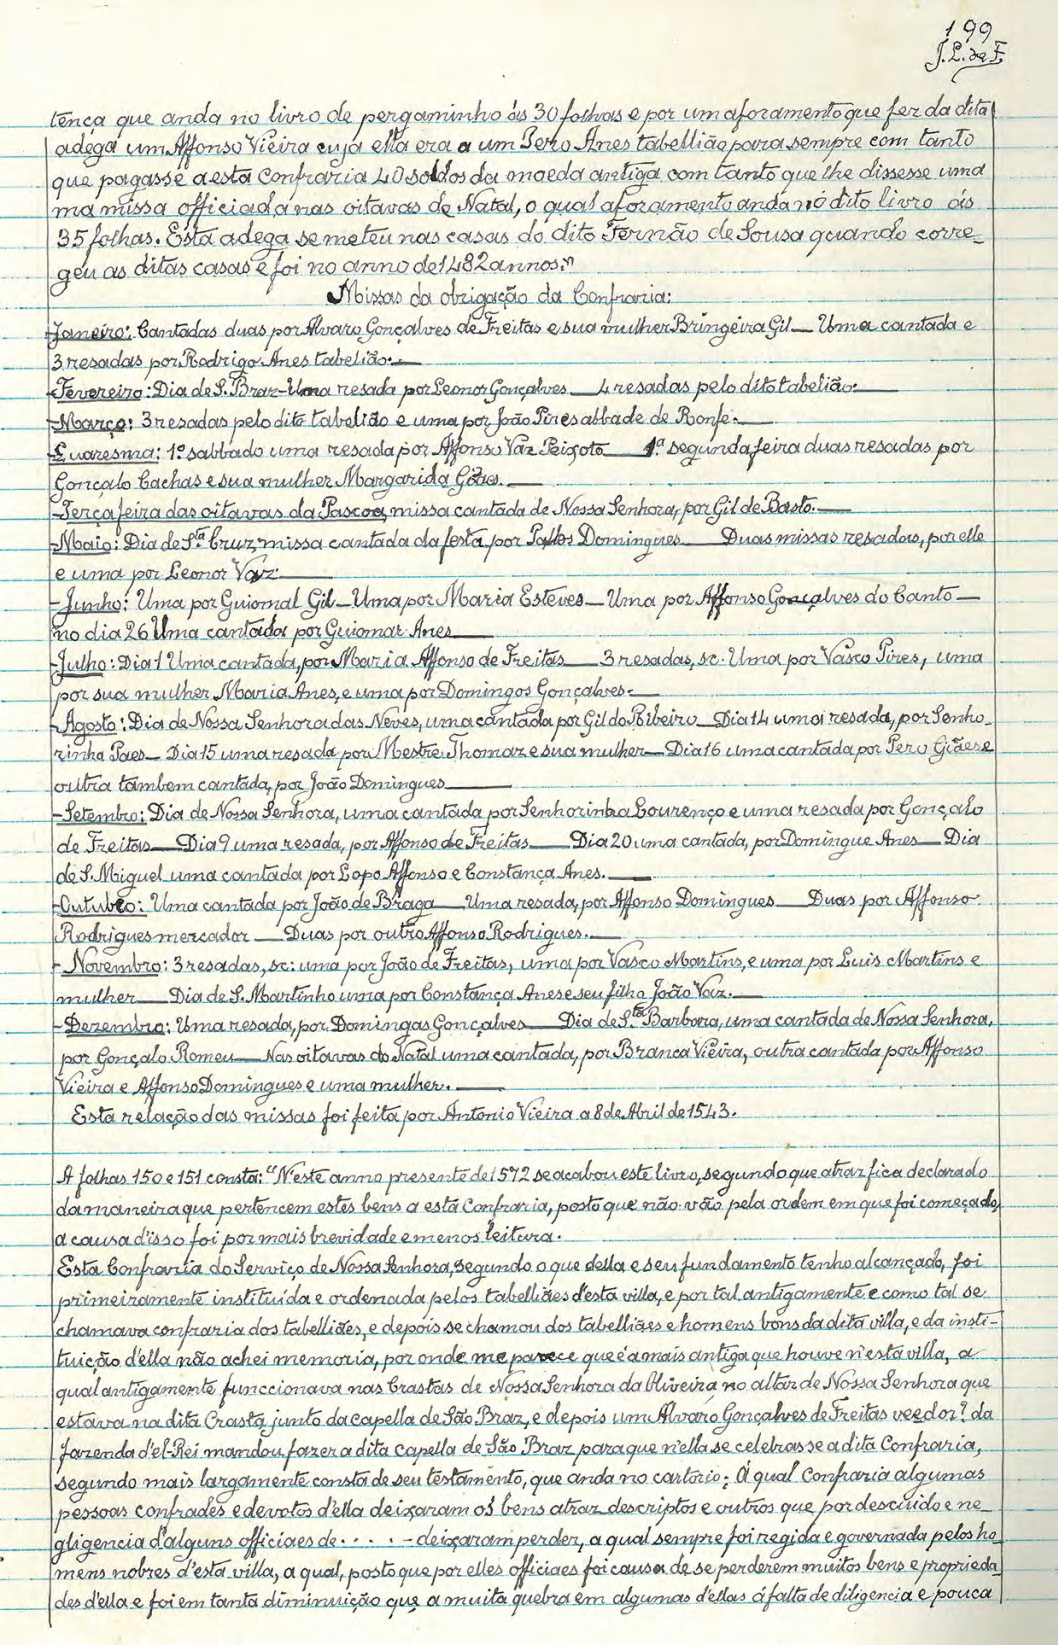 199
J. L. de F.
tença que anda no livro de pergaminho ás 30 folhas e por um aforamento que fez da dita
adega um Affonso Vieira cuja ella era a um Pero Anes tabellião para sempre com tanto
que pagasse a esta Confraria 40 soldos da moeda antiga com tanto que lhe dissesse uma
ma missa officiada nas oitavas de Natal, o qual aforamento anda no dito livro ás
35 folhas. Esta adega se meteu nas casas do dito Fernão de Sousa quando corre-
geu as ditas casas e foi no anno de 1482 annos."
Missas da obrigação da Confraria:
-Janeiro: Cantadas duas por Alvaro Gonçalves de Freitas e sua mulher Bringeira Gil — Uma cantada e
3 resadas por Rodrigo Anes tabelião. —
-Fevereiro: Dia de S. Braz - Uma resada por Leonor Gonçalves — 4 resadas pelo dito tabelião.
-Março: 3 resadas pelo dito tabelião e uma por João Pires abbade de Ronfe. —
-Quaresma: 1º sabbado uma resada por Affonso Vaz Peixoto — 1ª segunda feira duas resadas por
Gonçalo Cachas e sua mulher Margarida —
-Terça feira das oitavas da Pascoa, missa cantada de Nossa Senhora, por Gil de Basto. —
-Maio: Dia de S.ta Cruz, missa cantada da festa, por Domingues — Duas missas resadas, por elle
e uma por Leonor Vaz. —
-Junho: Uma por Guiomal Gil — Uma por Maria Esteves — Uma por Affonso Gonçalves do Canto —
no dia 26 Uma cantada por Guiomar Anes —
-Julho: Dia 1 Uma cantada, por Maria Affonso de Freitas — 3 resadas, sc. Uma por Vasco Pires, uma
por sua mulher Maria Anes, e uma por Domingos Gonçalves. —
-Agosto: Dia de Nossa Senhora das Neves, uma cantada por Gil do Ribeiro — Dia 14 uma resada, por Senho-
rinha Paes — Dia 15 uma resada por Mestre Thomaz e sua mulher — Dia 16 uma cantada por Pero Giães e
outra tambem cantada, por João Domingues —
-Setembro: Dia de Nossa Senhora, uma cantada por Senhorinha Lourenço e uma resada por Gonçalo
de Freitas — Dia 9 uma resada, por Affonso de Freitas — Dia 20 uma cantada, por Domingue Anes — Dia
de S. Miguel uma cantada por Lopo Affonso e Constança Anes. —
-Outubro: Uma cantada por João de Braga — Uma resada, por Affonso Domingues — Duas por Affonso
Rodrigues mercador — Duas por outro Affonso Rodrigues. —
- Novembro: 3 resadas, sc: uma por João de Freitas, uma por Vasco Martins, e uma por Luis Martins e
mulher — Dia de S. Martinho uma por Constança Anes e seu filho João Vaz. —
-Dezembro: Uma resada, por Domingas Gonçalves — Dia de S.ta Barbara, uma cantada de Nossa Senhora,
por Gonçalo Romeu — Nas oitavas do Natal uma cantada, por Branca Vieira, outra cantada por Affonso
Vieira e Affonso Domingues e uma mulher. —
Esta relação das missas foi feita por Antonio Vieira a 8 de Abril de 1543.
A folhas 150 e 151 consta: "N'este anno presente de 1572 se acabou este livro, segundo que atraz fica declarado
da maneira que pertencem estes bens a esta Confraria, posto que não vão pela ordem em que foi começado,
a causa d'isso foi por mais brevidade e menos leitura.
Esta Confraria do Serviço de Nossa Senhora, segundo o que della e seu fundamento tenho alcançado, foi
primeiramente instituída e ordenada pelos tabelliães d'esta villa, e por tal antigamente e como tal se
chamava confraria dos tabelliães, e depois se chamou dos tabelliães e homens bons da dita villa, e da insti-
tuição d'ella não achei memoria, por onde me parece que é a mais antiga que houve n'esta villa, a
qual antigamente funccionava nas Crastas de Nossa Senhora da Oliveira no altar de Nossa Senhora que
estava na dita Crasta junto da capella de São Braz, e depois um Alvaro Gonçalves de Freitas veedor? da
fazenda d'el-Rei mandou fazer a dita capella de São Braz para que n'ella se celebrasse a dita Confraria,
segundo mais largamente consta de seu testamento, que anda no cartorio; Á qual Confraria algumas
pessoas confrades e devotos d'ella deixaram os bens atraz descriptos e outros que por descuido e ne-
gligencia d'alguns officiaes de . . . . - deixaram perder, a qual sempre foi regida e governada pelos ho-
mens nobres d'esta villa, a qual, posto que por elles officiaes foi causa de se perderem muitos bens e proprieda-
des d'ella e foi em tanta diminuição que a muita quebra em algumas d'ellas á falta de diligencia e pouca